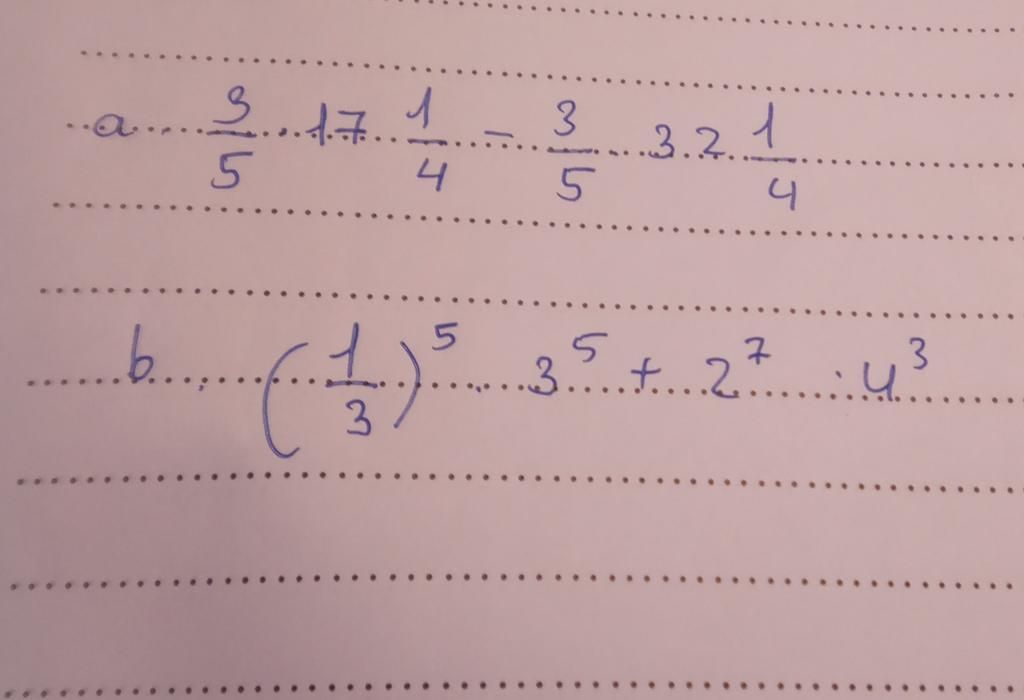 a 3/5 · 17 1/4 - 3/5 32 1/4
b. (1/3)⁵ · 3⁵ + 2⁷ · 4³